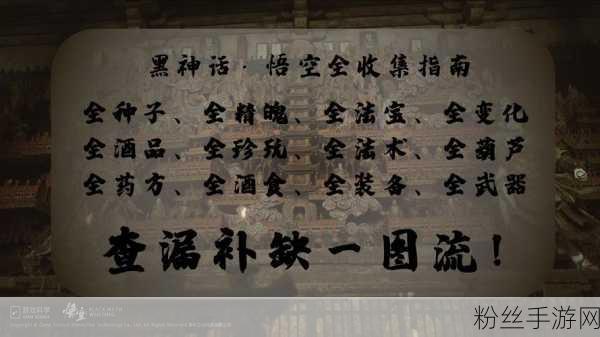 黑神话·悟空全收集指南
全种子、全精魄、全法宝、全变化
全酒品、全珍玩、全法术、全葫芦
全药方、全酒食、全装备、全武器
查漏补缺一图流！
游戏科学
GAME SCIENCE
BLACK MYTH
WUKONG
粉丝手游网